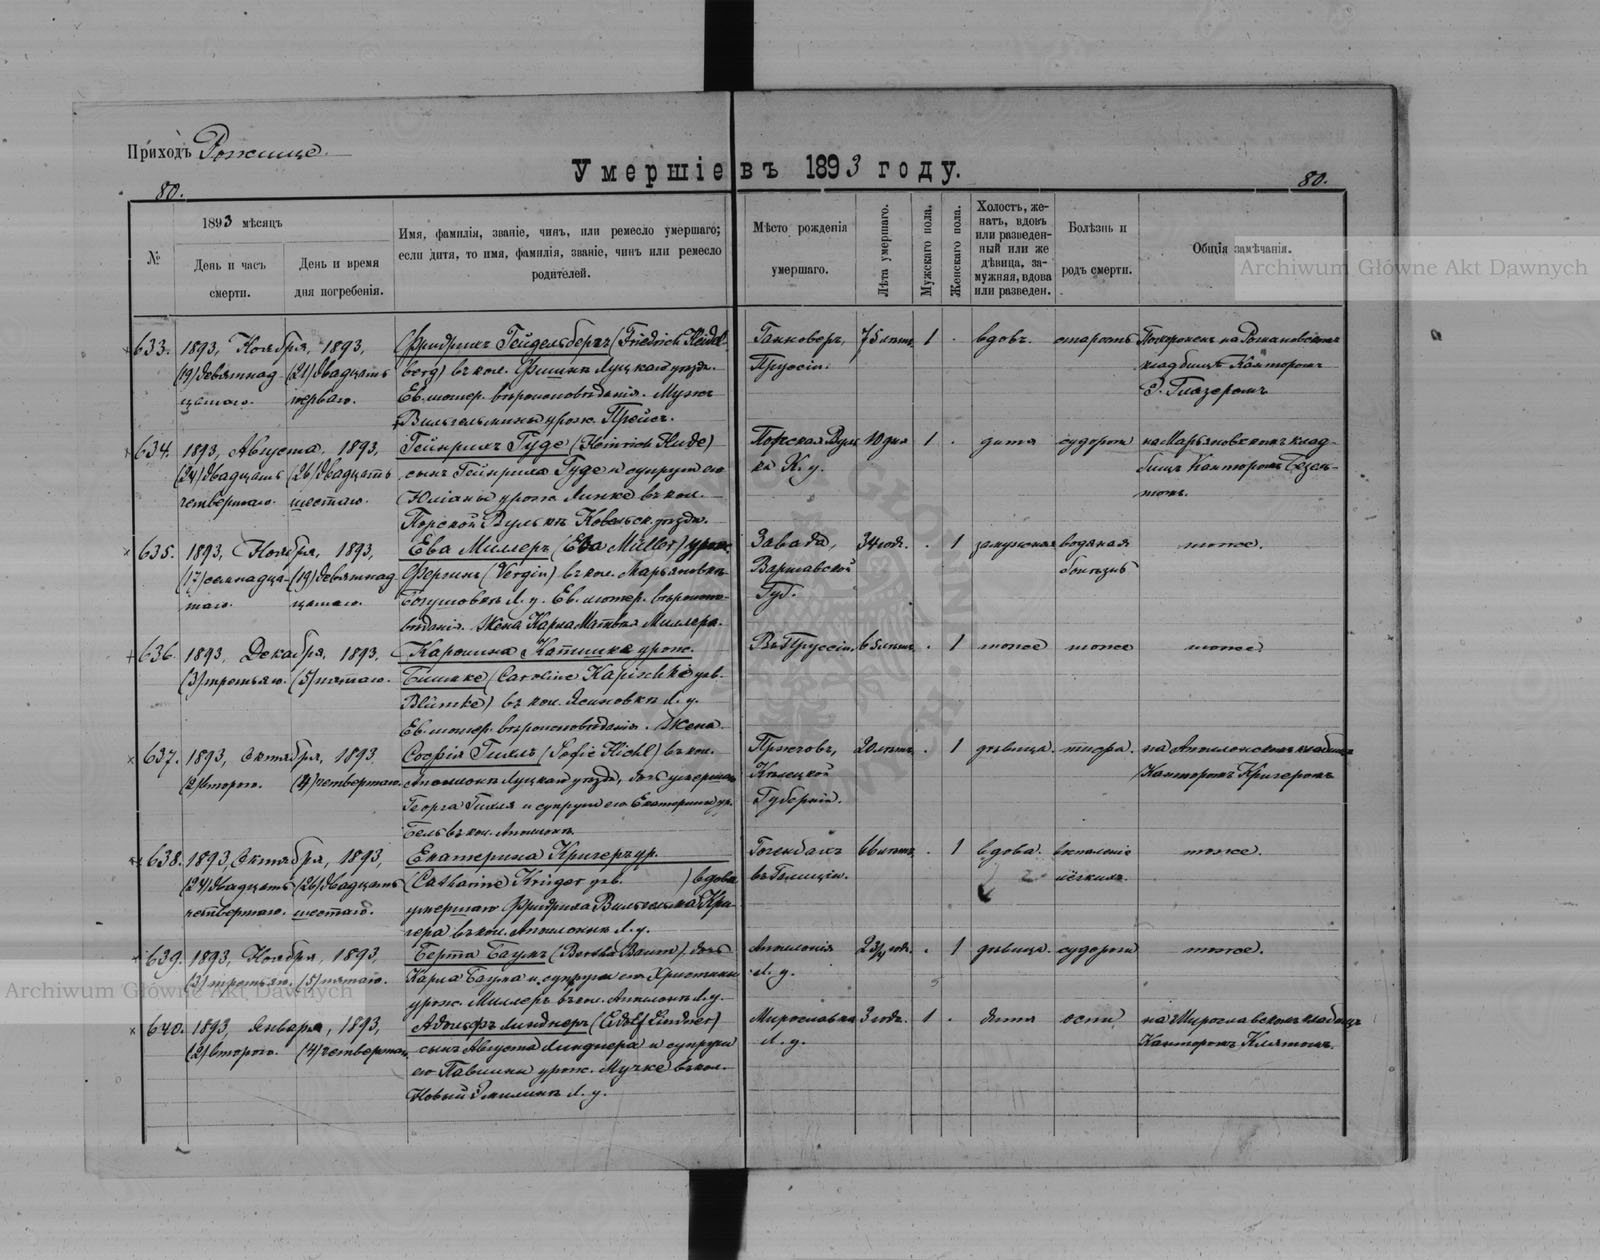 Приходъ Рожище.
Умершіе въ 1893 году.
80.
80.
№
1893 мѣсяцъ
День и часъ
смерти.
День и время
дня погребенія.
Имя, фамилія, званіе, чинъ, или ремесло умершаго;
если дитя, то имя, фамилія, званіе, чинъ или ремесло
родителей.
Мѣсто рожденія
умершаго.
Лѣта умершаго.
Мужскаго пола.
Женскаго пола.
Холостъ, же-
натъ, вдовъ
или разведен-
ный или же
дѣвица, за-
мужняя, вдова
или разведен.
Болѣзнь и
родъ смерти.
Общія замѣчанія.
Archiwum Główne Akt Dawnych
633. 1893, Ноября, 1893, Фридрихъ Гейдельбергъ (Friedrich Heidel- Ганноверъ, 75 лѣтъ 1 . вдовъ. старость Похороненъ на Рожановскомъ
(19) девятнад (21) двадцать berg) въ кол. Луцкаго уѣзда. Пруссіи. кладбищѣ Канторомъ
цатаго. перваго. Ев. лютер. вѣроисповѣданія. Мужъ Глазеромъ
Вильгельмины урож. Прейсъ.
634. 1893, Августа, 1893, Гейнрихъ Гуде (Heinrich Hude) Порская Вуль 10 дня 1 . дитя судороги на Марьяновскомъ клад-
(24) двадцать (26) двадцать сынъ Гейнриха Гуде и супруги его ка К. у. бищѣ Канторомъ
четвертаго. шестаго. Юліаны урож. Линке въ кол.
Порской Вулькѣ Ковельск. уѣзда.
635. 1893, Ноября, 1893, Ева Миллеръ (Eva Müller) урож. Завада, 34 год. . 1 замужняя водяная тоже.
(17) семнадца- (19) девятнад Фергинъ (Vergin) въ кол. Марьяновкѣ Варшавской болѣзнь
таго. цатаго. Богушовкѣ Л. у. Ев. лютер. вѣроиспо- Губ.
вѣданія. Жена Карла Матвѣя Миллера.
636. 1893, Декабря, 1893, Каролина Капишке урож. Въ Пруссіи. 65 лѣтъ . 1 тоже тоже тоже.
(3) третьяго. (5) пятаго. (Caroline Kapischke geb.
Blümke) въ кол. Ясиновкѣ Л. у.
Ев. лютер. вѣроисповѣданія. Жена
637. 1893, Октября, 1893, Софія Гихль (Sofie Hichl) въ кол. 20 лѣтъ . 1 дѣвица. тифа. на Аполонскомъ кладбищѣ
(2) втораго. (4) четвертаго. Аполонкѣ Луцкаго уѣзда, дочь умершаго Кѣлецкой Канторомъ Кригеромъ
Георга Гихля и супруги его Екатерины ур. Губерніи.
въ кол. Аполонкѣ
638. 1893, Октября, 1893, Екатерина Кригеръ ур. 66 лѣтъ . 1 вдова. воспаленіе тоже.
(24) двадцать (26) двадцать (Catharine Krüger geb. ) вдова въ Галиціи. лёгкихъ.
четвертаго. шестаго. умершаго Фридриха Вильгельма Кри-
гера въ кол. Аполонкѣ Л. у.
639. 1893, Ноября, 1893, Берта Баумъ (Bertha Baum) дочь Аполонія 2 3/4 год. . 1 дѣвица. судороги тоже.
(3) третьяго. (5) пятаго. Карла Баума и супруги его Христины Л. у.
Archiwum Główne Akt Dawnych
урож. Миллеръ въ кол. Аполонкѣ Л. у.
640. 1893, Января, 1893, Адольфъ Линднеръ (Adolf Lindner) Мирославка 3 год. 1 . дитя оспы на Мирославскомъ кладбищѣ
(2) втораго. (4) четвертаго сынъ Августа Линднера и супруги Л. у. Канторомъ
его Павлины урож. въ кол.
Новый Л. у.